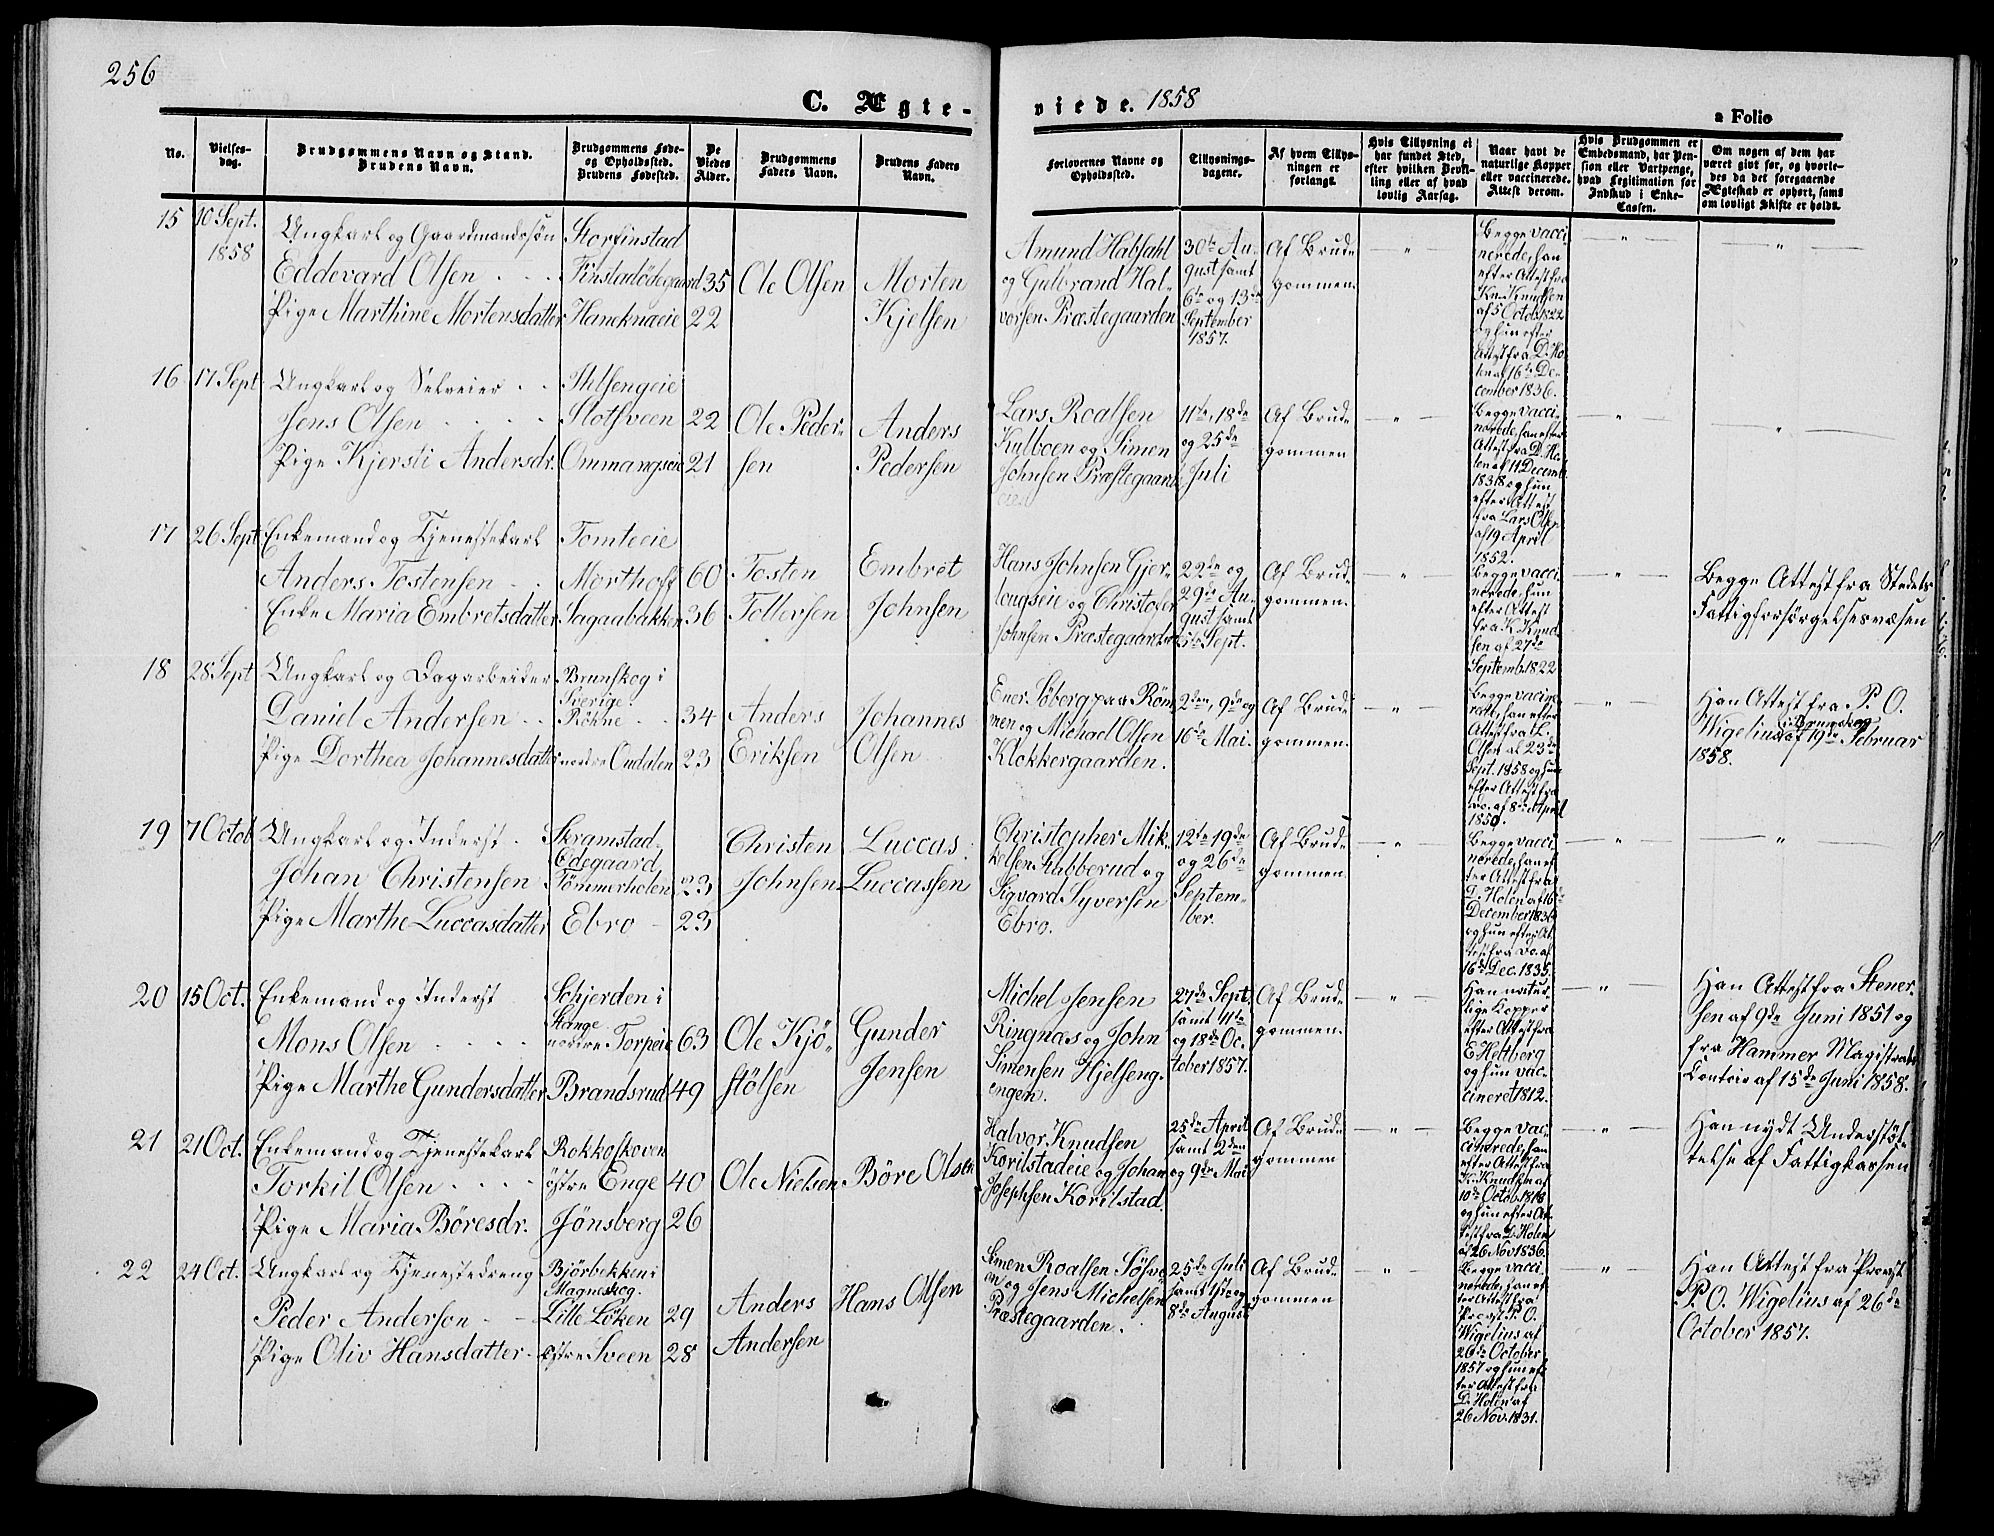 256
C. Ægte-
viede. 1858
a Folio
No.
Vielses-
dag.
Brudgommens Navn og Stand.
Brudens Navn.
Brudgommens Føde-
og Opholdssted.
Brudens Fødested.
De
Viedes
Alder.
Brudgommens
Faders Navn.
Brudens Faders
Navn.
Forlovernes Navne og
Opholdssted.
Tillysnings-
dagene.
Af hvem Tillys-
ningen er
forlangt.
Hvis Tillysning ei
har fundet Sted,
efter hvilken Bevil-
ling eller af hvad
lovlig Aarsag.
Naar havt de
naturlige Kopper
eller vaccinerede.
Attest derom.
Hvis Brudgommen er
Embedsmand, har Pen-
sion eller Vartpenge,
hvad Legitimation for
Indskud i Enke-
Cassen.
Om nogen af dem har
været givt før, og hvorle-
des da det foregaaende
Ægteskab er ophørt, samt
om lovligt Skifte er holdt.
15
10 Sept.
1858
Ungkarl og Gaardmandssøn
Eddevard Olsen
Pige Marthine Mortensdatter
Storfinstad
Finstadødegaard
Haneknæeie
35
22
Ole Olsen
Morten
Kjelsen
Amund Habsahl
og Gulbrand Hal-
vorsen Præstegaarden
30te Au-
gust samt
6te og 13de
September
1857.
Af Brud-
gommen.
Begge vacci-
nerede, han
efter Attest fra
Kn. Knudsen
af 5 Octob. 1822
og hun efter
Attest fra D. Ho-
len af 16de De-
cember 1836.
16
17 Sept
Ungkarl og Selveier
Jens Olsen
Pige Kjersti Andersdr.
Ihlsengeie
Slotsveen
Ommangseie
22
21
Ole Peder-
sen
Anders
Pedersen
Lars Roalsen
Kulboen og Simen
Johnsen Præstegaards
eiet
11te, 18de
og 25de
Juli
Af Brud-
gommen
Begge vacci-
nerede, han efter
Attest fra D. Ho-
len af 11 Decemb.
1838 og hun
efter Attest
fra Lars Olsen
af 19 April
1852.
17
26 Sept
Enkemand og Tjenestekarl
Anders Tostensen
Enke Maria Embretsdatter
Tomteeie
Morthoff
Sagaabakken
60
36
Tosten
Tollersen
Embret
Johnsen
Hans Johnsen Gjer-
lougseie og Christofer
Johnsen Præstegaarden
22de og
29de Au-
gust samt
5te Sept.
Af Brud-
gommen.
Begge vacci-
nerede, hun
efter Attest
fra K. Knud-
sen af 27de
Septemb. 1822
Begge Attest fra Stedets
Fattigforsørgelsesvæsen
18
28 Sept
Ungkarl og Dagarbeider
Daniel Andersen
Pige Dorthea Johannesdatter
Brunskog i
Sverige.
Røhne
nordre Ondalen
34
23
Anders
Eriksen
Johannes
Olsen
Ener. Søberg paa Røm-
men og Michael Olsen
Klokkergaarden.
2den, 9de og
16de Mai.
Af Brud-
gommen.
Begge vaccine-
rede, han efter
Attest fra L.
Olsen af 23de
Sept. 1858 og hun
efter Attest fra
Do. af 8de April
1850.
Han Attest fra P. O.
Wigelius i Brunskog
af 19de Februar
1858.
19
7 Octob
Ungkarl og Inderst
Johan Christensen
Pige Marthe Luccasdatter
Skramstad-
Ødegaard
Tømmerholen
Ebro
23
23
Christen
Johnsen
Luccas
Luccassen
Christopher Mik-
kelsen Habberud og
Sigvard Syversen
Ebro.
12te 19de
og 26de
Septem-
ber.
Af Brud-
gommen.
Begge vacci-
nerede, han ef-
ter Attest fra
D. Holen af 16de
December 1836
og hun efter At-
test fra Do. af
16de Dec. 1835.
20
15 Oct.
Enkemand og Inderst
Mons Olsen
Pige Marthe Gundersdatter
Schjerden i
Stange
nordre Torpeie
Brandsrud
63
49
Ole Kjø-
stølsen
Gunder
Jensen
Michel Jensen
Ringnæs og John
Simensen Hjelseng-
engen.
27de Sept.
samt 11te
og 18de Oc-
tober 1857.
Af Brud-
gommen.
Han natur-
lige Kopper
efter Attest fra
E. Heltberg
og hun vac-
cineret 1812.
Han Attest fra Stener-
sen af 9de Juni 1851 og
fra Hammer Magistrats
Contoir af 15de Juni 1858.
21
21 Oct.
Enkemand og Tjenestekarl
Torkil Olsen
Pige Maria Børesdr.
Rokkoskoven
østre Enge
Jønsberg
40
26
Ole Nielsen
Børe Olsen
Halvor Knudsen
Korilstadeie og Johan
Josephsen Korilstad.
25de April
samt 2den
og 9de Mai
Af Brud-
gommen
Begge vac-
cinerede, han
efter Attest fra
K. Knudsen af
10de Octob. 1818
og hun efter At-
test fra D. Holen
af 26 Nov 1836.
Han nydt Understøt-
telse af Fattigkassen
22
24 Oct.
Ungkarl og Tjenestedreng
Peder Anderson
Pige Oliv Hansdatter
Bjørbekken i
Magneskog.
Lille Løken
østre Sveen
29
28
Anders
Andersen
Hans Olsen
Simen Roalsen Søsve-
en og Jens Michelsen
Præstegaarden.
25de Juli
samt 1ste og
8de August
Af Brud-
gommen
Begge vacci-
nerede, han ef-
ter Attest fra
Provst P. O.
Wigelius af
26de October
1857 og hun ef-
ter Attest fra
D. Holen af
26 Nov. 1831.
Han Attest fra Provst
P. O. Wigelius af 26de
October 1857.